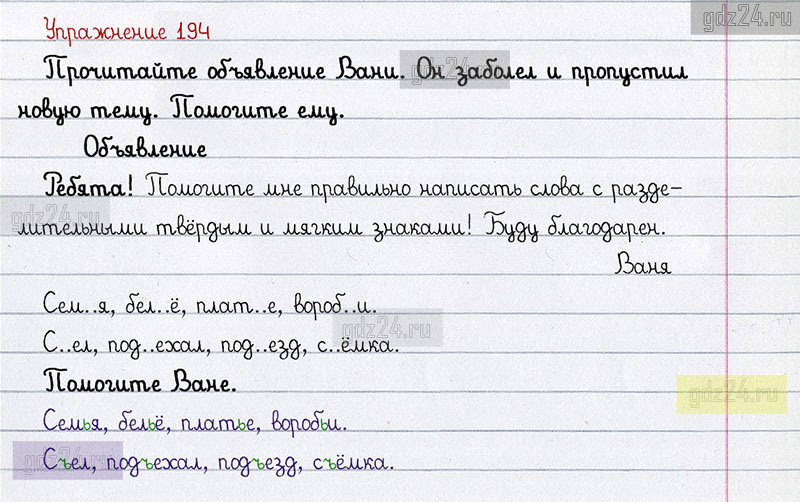 gdz24.ru
Упражнение 194
Прочитайте объявление Вани. Он заболел и пропустил
gdz24.ru
новую тему. Помогите ему.
Объявление
Ребята! Помогите мне правильно написать слова с разде-
gdz24.ru
лительными твёрдым и мягким знаками! Буду благодарен.
Ваня
Сем..я, бел..ё, плат..е, вороб..и.
gdz24.ru
С..ел, под..ехал, под..езд, с..ёмка.
Помогите Ване.
gdz24.ru
Семья, бельё, платье, воробьи.
Съел, подъехал, подъезд, съёмка.
gdz24.ru